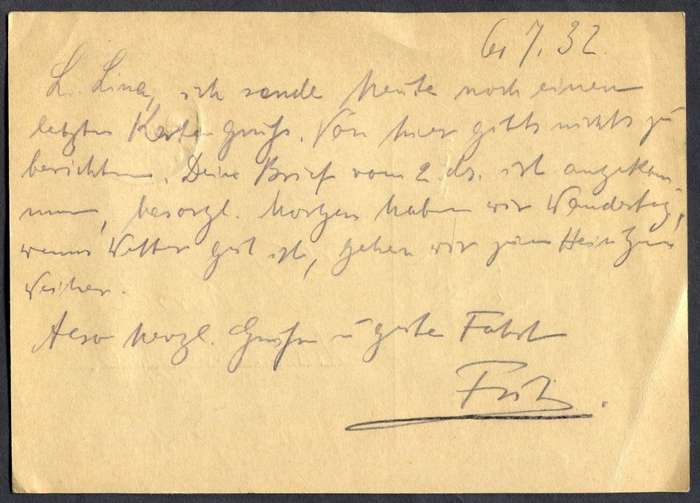 6. 7. 32.
L. Lina, ich sende heute noch einen
letzten Kartengruß. Von hier gibts nichts zu
berichten. Deine Brief vom 2. ds. ist angekom-
men, besorgt. Morgen haben wir Wandertag,
wenns Wetter gut ist, gehen wir zum
Weiher.
Also herzl. Grüße u gute Fahrt
Fritz.